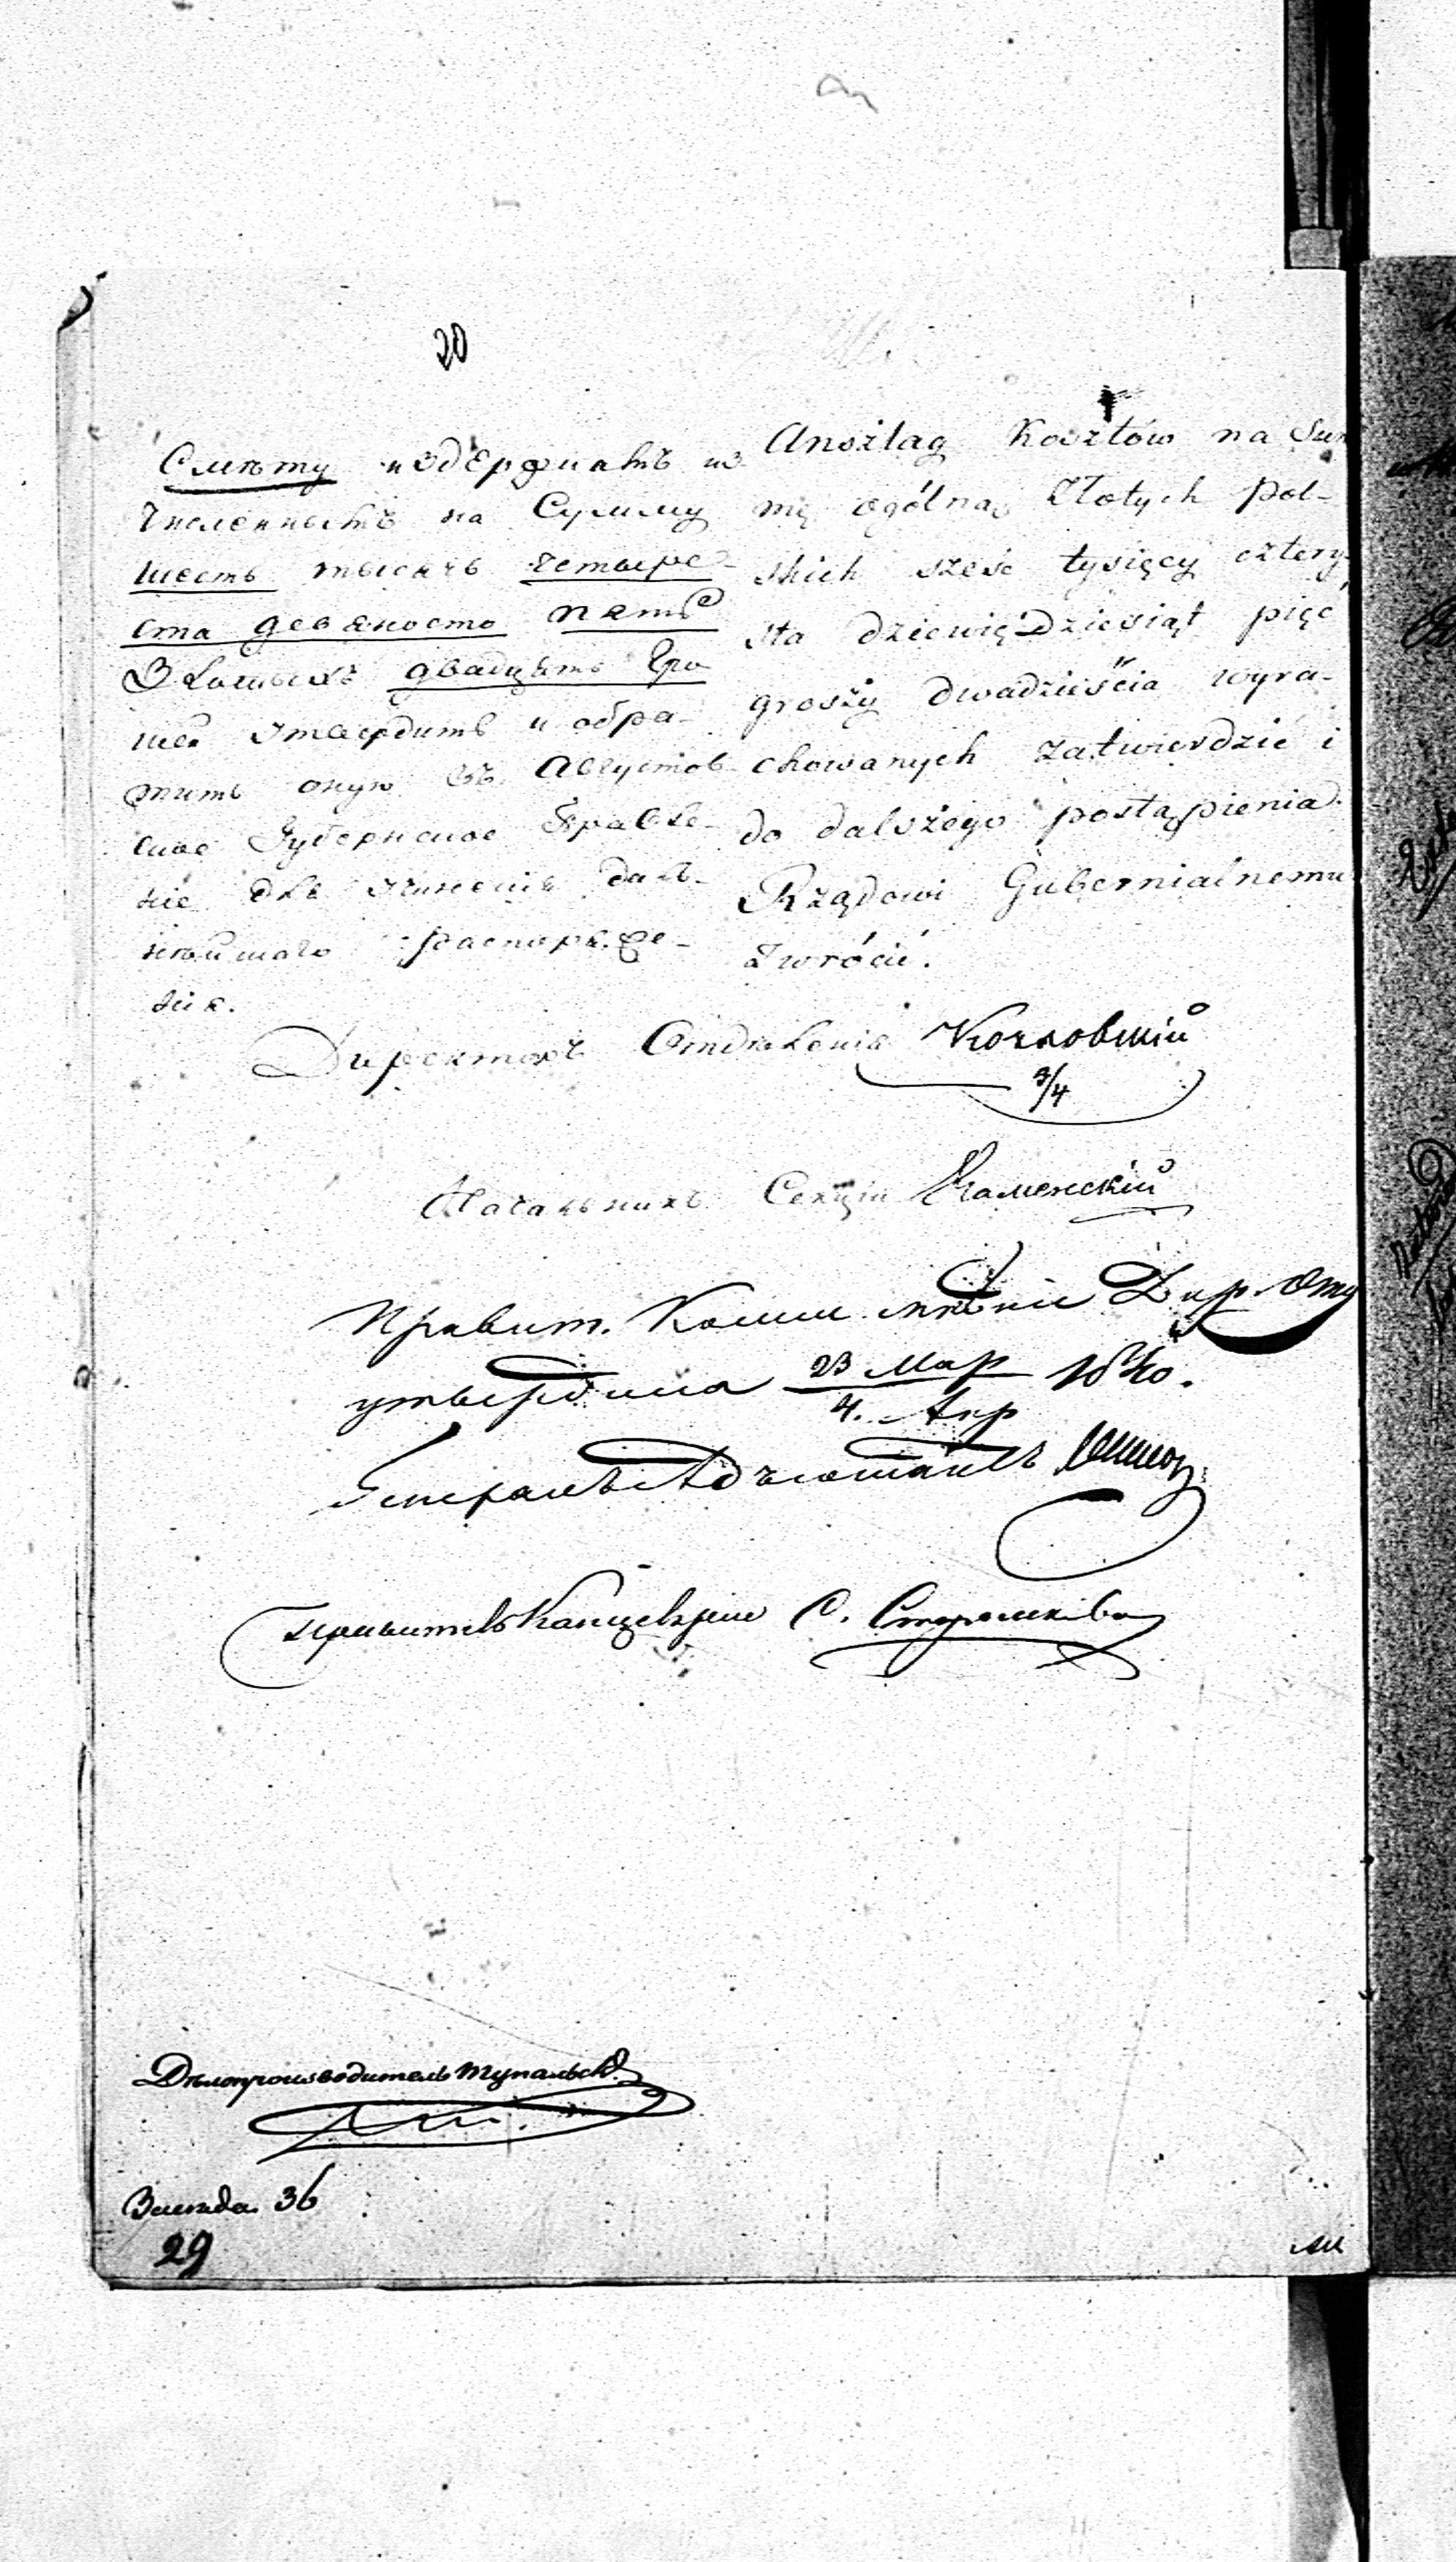 20
Смѣту издержкамъ ис-
численнымъ на Сумму
шесть тысячъ четыре-
ста девяносто пять
Злотыхъ двадцать Гро-
шей утвердить и обра-
тить оную въ Августов-
ское Губернское Правле-
ніе для учиненія даль-
нѣйшаго распоряже-
нія.
Anszlag Kosztów na Sum
mę ogólną Złotych Pol-
skich sześć tysięcy cztery-
sta dziewięćdziesiąt pięć
groszy dwadzieścia wyra-
chowanych zatwierdzić i
do dalszego postąpienia
Rządowi Gubernialnemu
zwrócić.
Директоръ Отдѣленія
3/4
Начальникъ Секціи Каменскій
Правит. Комм. мнѣніе Дир. Отд
утвердила 23 Мар 1840.
4. Апр
Генералъ Адъютантъ
Правитель Канцеляріи С.
Дѣлопроизводитель
36
29